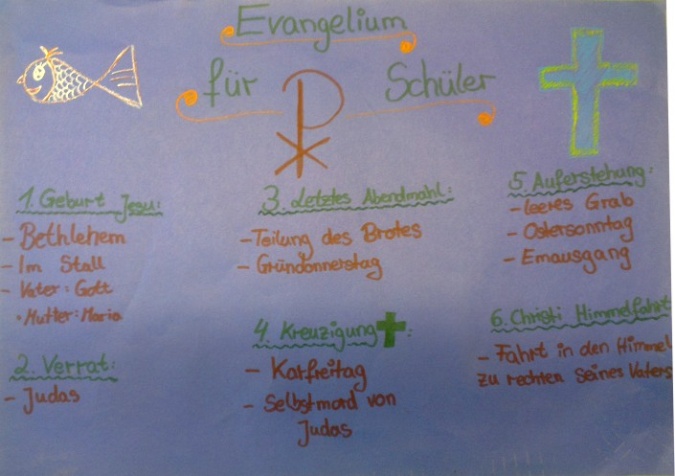 Evangelium
für Schüler
1. Geburt Jesu:
- Bethlehem
- Im Stall
- Vater: Gott
• Mutter: Maria
2. Verrat:
- Judas
3. Letztes Abendmahl:
- Teilung des Brotes
- Gründonnerstag
4. Kreuzigung :
- Karfreitag
- Selbstmord von
Judas
5. Auferstehung:
- leeres Grab
- Ostersonntag
- Emausgang
6. Christi Himmelfahrt
- Fahrt in den Himmel
zu rechten Seines Vaters